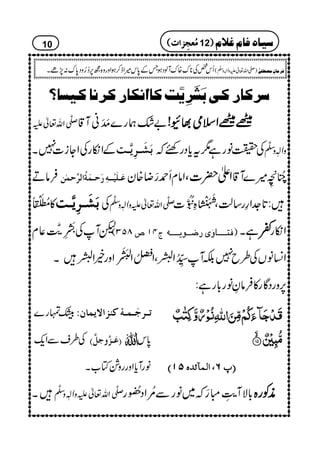 سیاہ فام غلام (12 مُعجزات) 10
فرمانِ مصطفٰے (صلی اللہ تعالیٰ علیہ والہٖ وسلم): اُس شخص کی ناک خاک آلود ہو جس کے پاس میرا ذِکر ہو اور وہ مجھ پر دُرُودِ پاک نہ پڑھے۔
سرکار کی بَشَرِیَّت کا انکار کرنا کیسا؟
میٹھے میٹھے اسلامی بھائیو! بے شک ہمارے مَدَنی آقا صلَّی اللہ تعالٰی علیہ
واٰلہٖ وسلَّم کی حقیقت نور ہے مگر یہ یاد رکھئے کہ بَشَرِیَّت کے انکار کی اجازت نہیں۔
چُنانچِہ میرے آقا اعلیٰ حضرت، امام اَحمد رضا خان عَلَیْہِ رَحْمَۃُ الرَّحْمٰن فرماتے
ہیں: تاجدارِ رسالت، شَہَنْشاہِ نُبُوَّت صلَّی اللہ تعالٰی علیہ واٰلہٖ وسلَّم کی بَشَرِیَّت کا مُطْلَقاً
انکار کُفر ہے۔ (فتاوٰی رضویہ ج ۱۴ ص ۳۵۸) لیکن آپ کی بَشَرِیَّت عام
انسانوں کی طرح نہیں بلکہ آپ سیِّدُ البشر، افضلُ البَشَر اور خیرُ البشر ہیں۔
پروردگار کا فرمانِ نور بار ہے:
قَدْ جَآءَكُمْ مِّنَ اللّٰهِ نُوْرٌ وَّ كِتٰبٌ ترجَمۂ کنزالایمان: بیشک تمہارے
مُّبِیْنٌۙ پاس اللہ (عَزَّوَجَلَّ) کی طرف سے ایک
(پ ۶، المآئدہ ۱۵) نور آیا اور روشن کتاب۔
مذکورہ بالا آیتِ مبارَکہ میں نور سے مُراد حُضور صلَّی اللہ تعالٰی علیہ واٰلہٖ وسلَّم ہیں۔